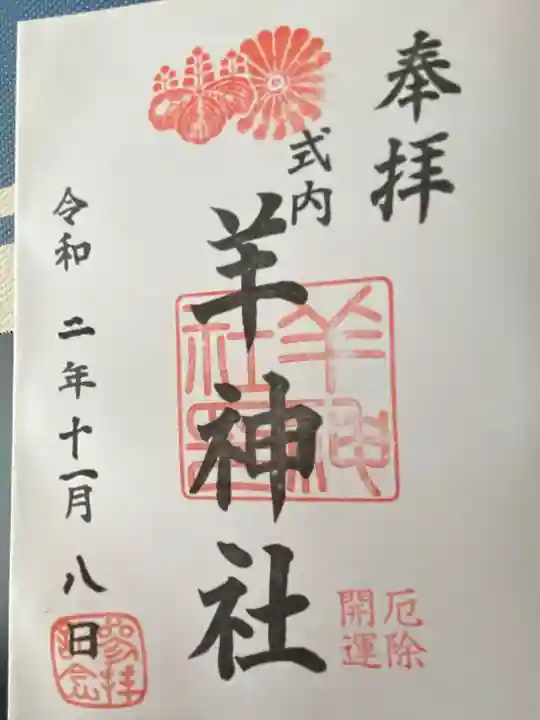 奉拝
式内
羊神社
羊神社璽
厄除
開運
令和 二年十一月 八日
参拝記念